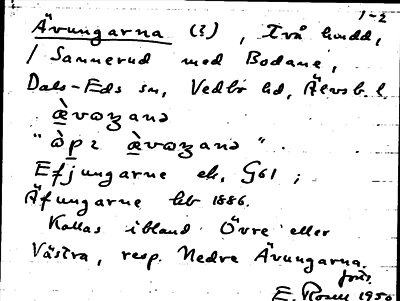 1-2
Ävungarna (?), Två hudd,
/ Sannerud med Bodane,
Dals-Eds sn, Vedbo hd, Älvsb. l.
æ̀vωȝanə
" òpı æ̀vωȝanə ".
Efjungarne ek. G61 ;
Äfungarne hb 1886.
Kallas ibland Övre eller
Västra, resp. Nedre Ävungarna.
forts.
E. Rosell 1950